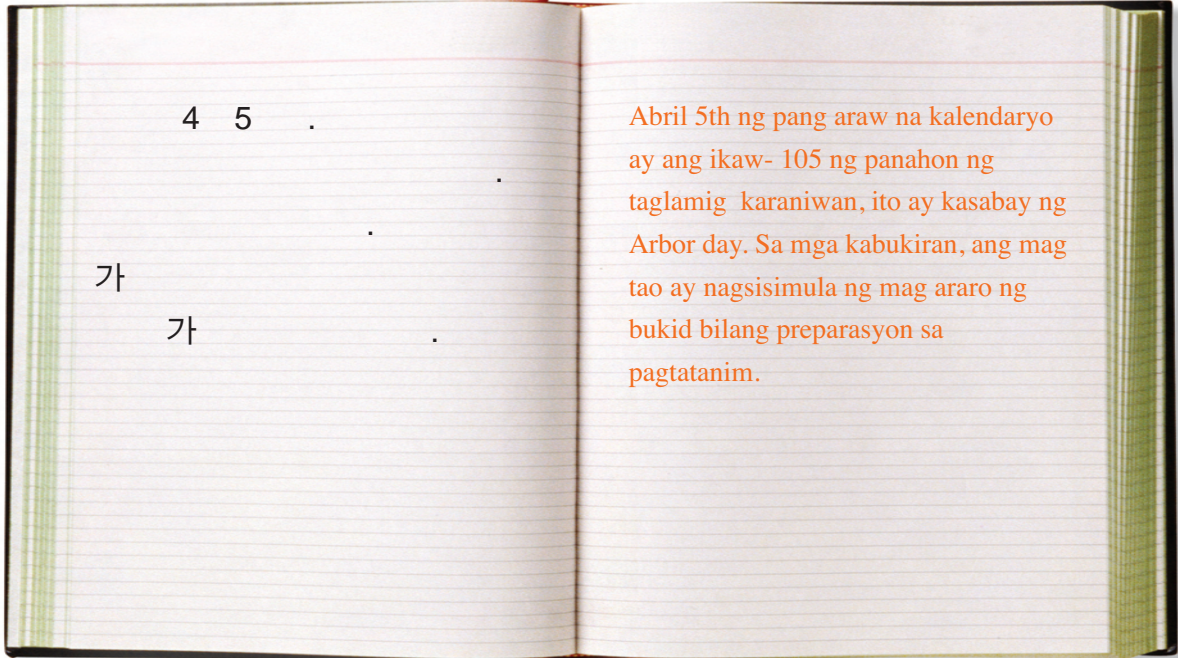 4 5 .
.
.
가
가 .
Abril 5th ng pang araw na kalendaryo
ay ang ikaw- 105 ng panahon ng
taglamig karaniwan, ito ay kasabay ng
Arbor day. Sa mga kabukiran, ang mag
tao ay nagsisimula ng mag araro ng
bukid bilang preparasyon sa
pagtatanim.